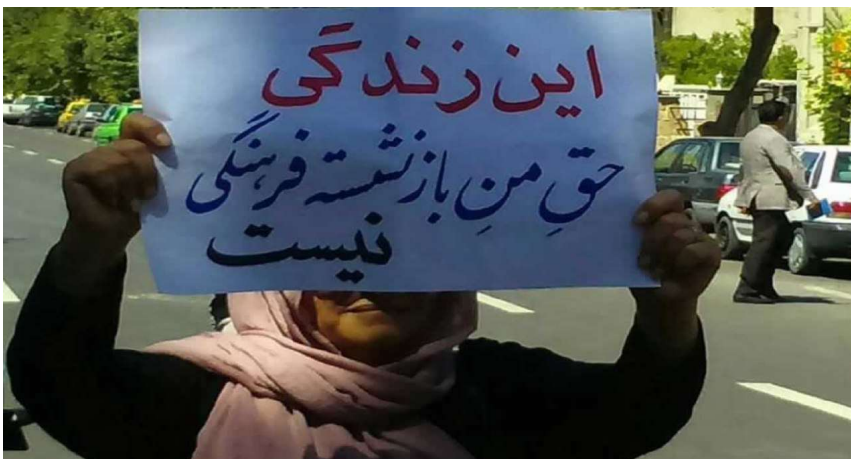 این زندگی
حقِ منِ بازنشسته فرهنگی
نیست